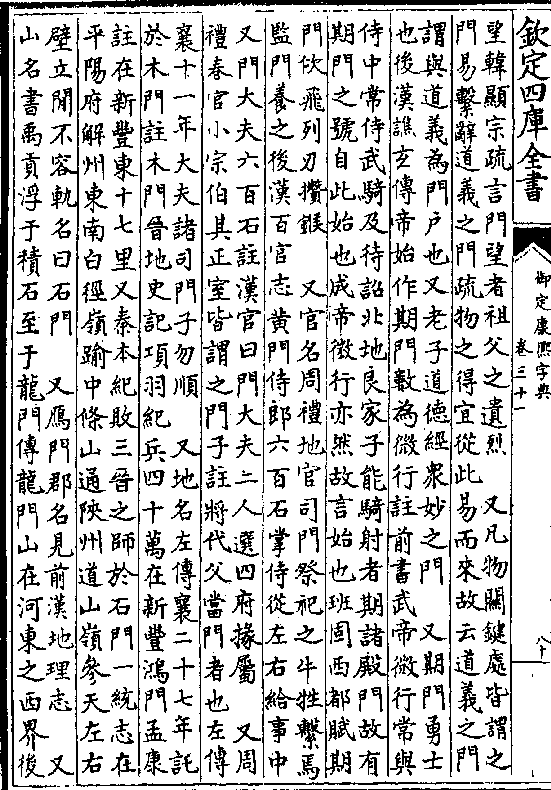 欽定四庫全書
御定康熙字典
卷三十一
八十
望韓顯宗疏言門望者祖父之遺烈　又凡物關鍵處皆謂之
門易繫辭道義之門疏物之得宜從此易而來故云道義之門
謂與道義為門戶也又老子道德經衆妙之門　又期門勇士
也後漢譙玄傳帝始作期門數為微行註前書武帝微行常與
侍中常侍武騎及待詔北地良家子能騎射者期諸殿門故有
期門之號自此始也成帝微行亦然故言始也班固西都賦期
門佽飛列刃攢鍭　又官名周禮地官司門祭祀之牛牲繫焉
監門養之後漢百官志黄門侍郎六百石掌侍從左右給事中
又門大夫六百石註漢官曰門大夫二人選四府掾屬　又周
禮春官小宗伯其正室皆謂之門子註將代父當門者也左傳
襄十一年大夫諸司門子勿順　又地名左傳襄二十七年託
於木門註木門晉地史記項羽紀兵四十萬在新豐鴻門孟康
註在新豐東十七里又秦本紀敗三晉之師於石門一統志在
平陽府解州東南白徑嶺踰中條山通陝州道山嶺參天左右
壁立閒不容軌名曰石門　又鴈門郡名見前漢地理志　又
山名書禹貢浮于積石至于龍門傳龍門山在河東之西界後